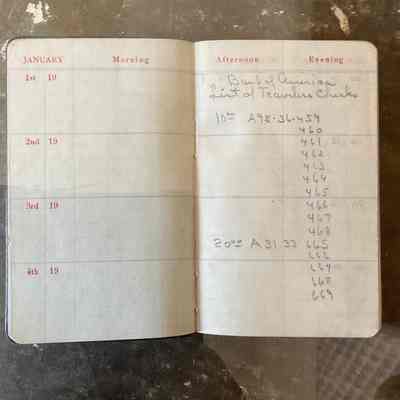 JANUARY Morning
1st 19
2nd 19
3rd 19
4th 19
Afternoon Evening
Bank of America
List of Travelers Checks
1000 A92-36-459
460
461
462
463
464
465
466
467
468
2000 A 31 33 665
666
667
668
669